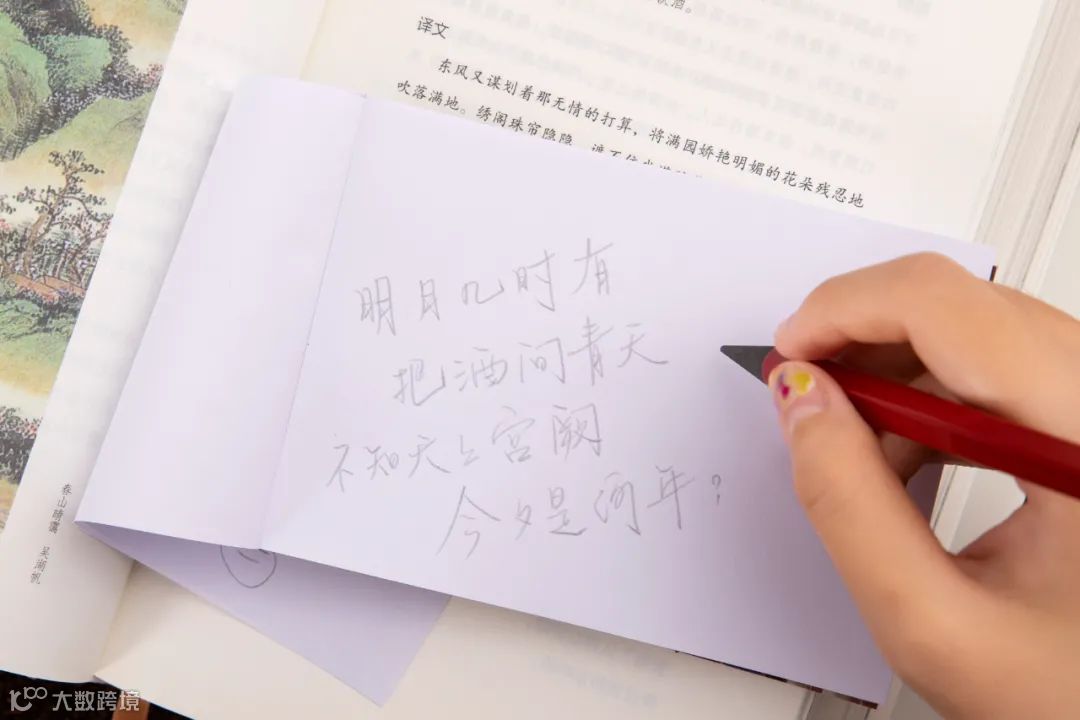 饮酒。
译文
东风又谋划着那无情的打算，将满园娇艳明媚的花朵残忍地
吹落满地。绣阁珠帘隐隐，遮不住
明月几时有
把酒问青天
不知天上宫阙
今夕是何年？
春山晴霭 吴湖帆
大数跨境